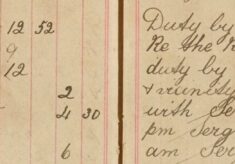 12 52 Duty by
9 Re the
12 duty by
2 & vicinity
4 30 with Se
pm Serg
6 am Ser